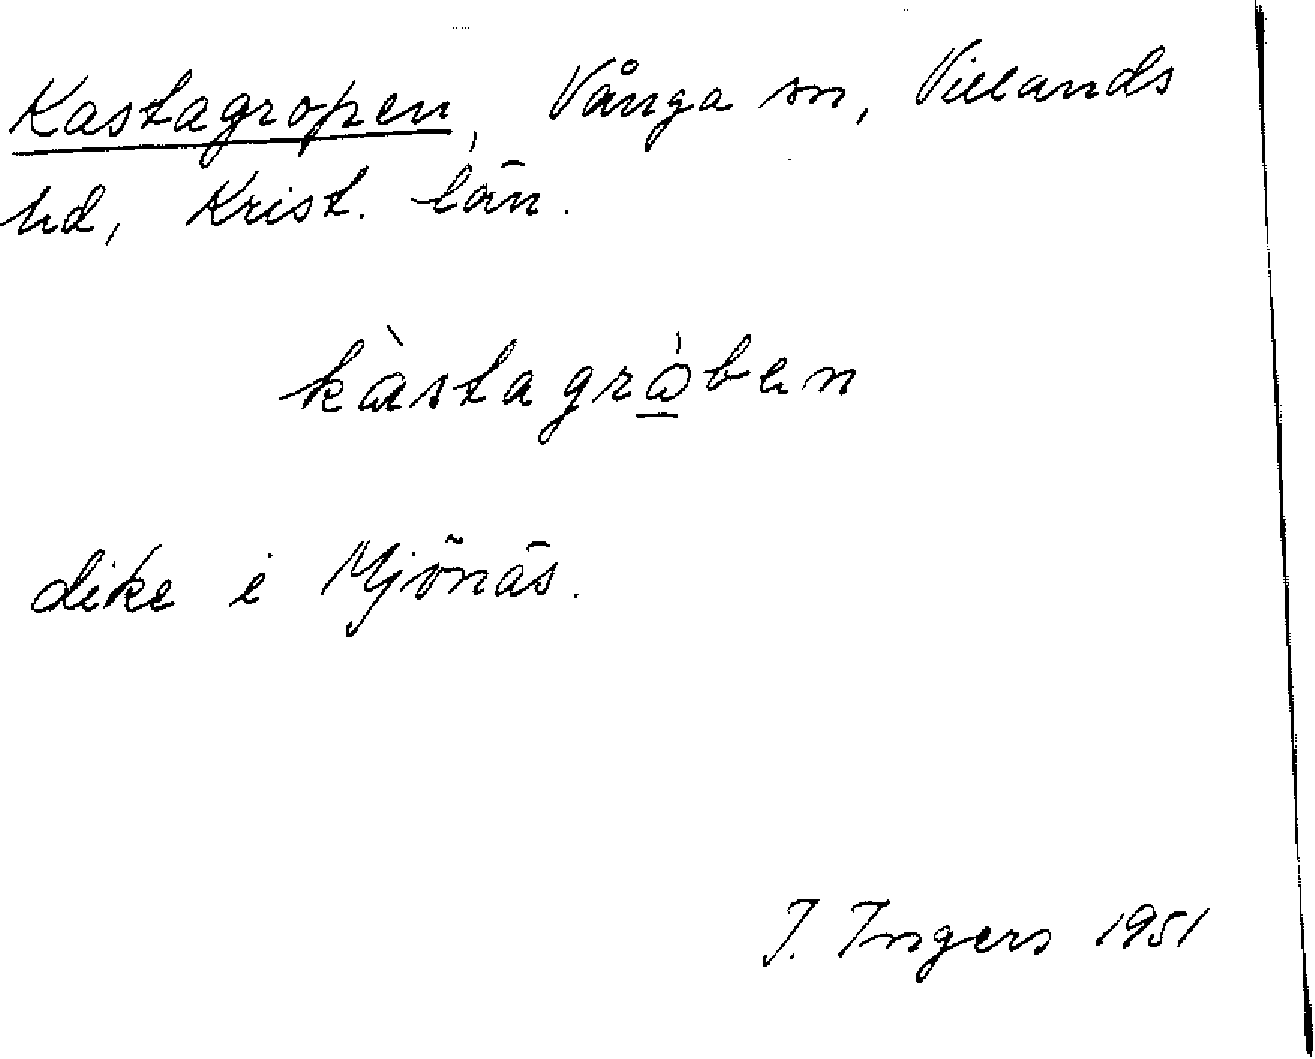 Kastagropen, Vånga sn, Villands
hd, Krist. län.
kàstagrȧ̲ben
dike i Mjönäs.
I. Ingers 1951